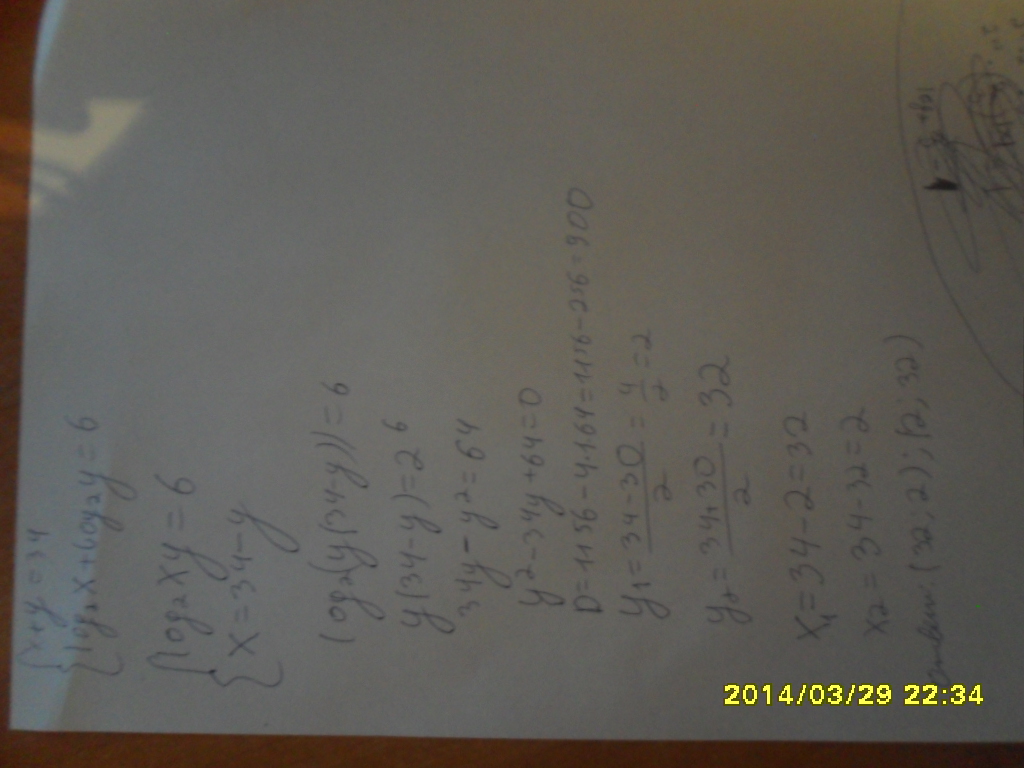 {x+y=34
{log₂x+log₂y=6
{log₂xy=6
{x=34-y
log₂(y(34-y))=6
y(34-y)=2⁶
34y-y²=64
y²-34y+64=0
D=1156-4·1·64=1156-256=900
y₁=(34-30)/2=4/2=2
y₂=(34+30)/2=32
x₁=34-2=32
x₂=34-32=2
Ответ: (32;2);(2;32)
2014/03/29 22:34